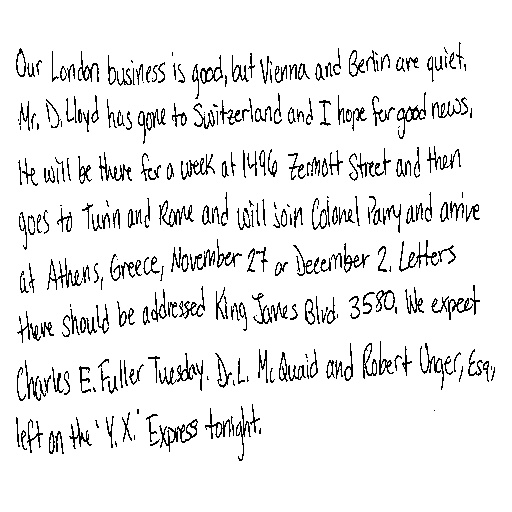 Our London business is good, but Vienna and Berlin are quiet.
Mr. D. Lloyd has gone to Switzerland and I hope for good news.
He will be there for a week at 1496 Zermott Street and then
goes to Turin and Rome and will join Colonel Parry and arrive
at Athens, Greece, November 27 or December 2. Letters
there should be addressed King James Blvd. 3580. We expect
Charles E. Fuller Tuesday. Dr. L. McQuaid and Robert Unger, Esq.,
left on the 'Y. X.' Express tonight.